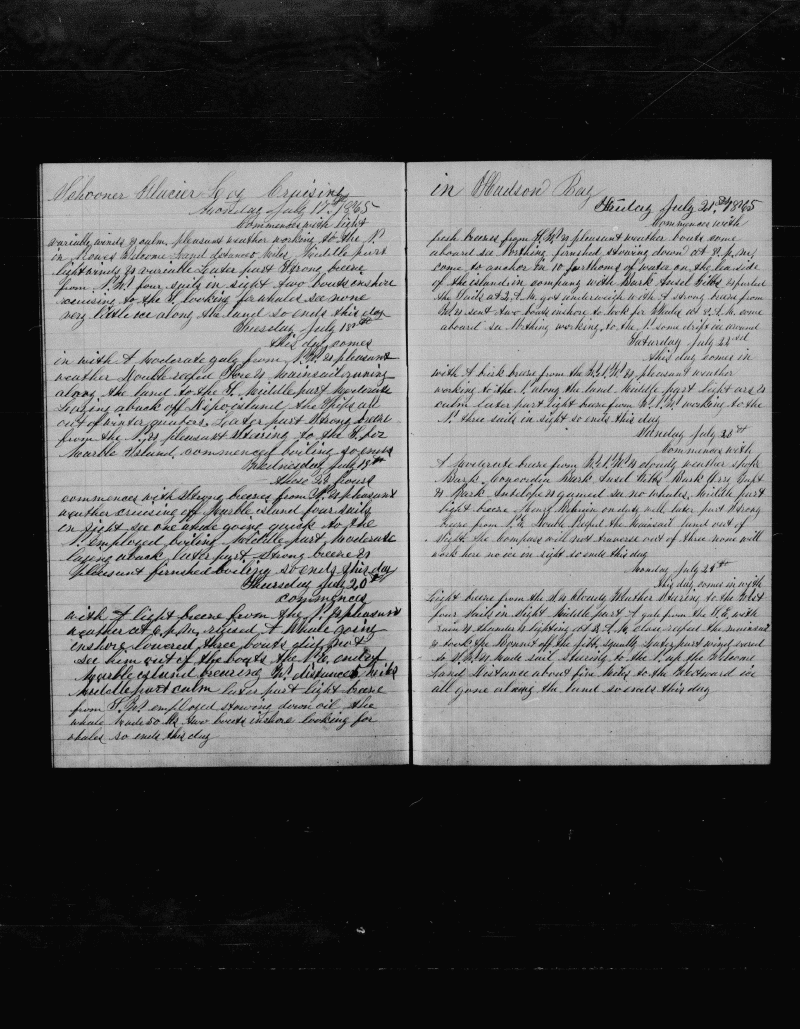 Schooner Glacier Log Cruising
Monday July 17th 1865
Commences with light
variable winds & calm, pleasant weather working to the N.
in Rowes Welcome Land distance miles Middle part
light winds & variable Later part Strong breeze
from N.W. four sails in sight two boats inshore
cruising to the looking for whales see none
very little ice along the land so ends this day
Tuesday July 18th
this day comes
in with A moderate gale from N.W. & pleasant
weather Double reefed mainsail running
along the land to the S. Middle part Moderate
Laying aback off Island the Ships all
out of winter quarters Later part Strong breeze
from the N. & pleasant Steering to the S. for
Marble Island commenced boiling so ends
Wednesday July 19th
these 24 hours
commences with Strong breeze from N. & pleasant
weather cruising off Marble island four sails
in sight see one whale going quick to the
N. employed boiling Middle part Moderate
laying aback later part strong breeze &
pleasant finished boiling so ends this day
Thursday July 20th
commences
with A light breeze from the N. & pleasant
weather at 6 p.m. raised A Whale going
inshore lowered three boats did not
see him out of the boats the N.E. end of
Marble island bearing W. distance 5 miles
Middle part calm later part light breeze
from S.W. employed stowing down oil the
whale made 50 bbls two boats inshore looking for
whales so ends this day
in Hudson Bay
Friday July 21st 1865
Commences with
fresh breezes from S.W. & pleasant weather boats came
aboard see Nothing finished stowing down at 8 p.m.
came to anchor in 10 fathoms of water on the lee side
of the island in company with Bark Ansel Gibbs & furled
the Sails at 2 A.M. got underweigh with A strong breeze from
& sent two boats inshore to look for Whales at 8 A.M. came
aboard see Nothing working to the N. some drift ice around
Saturday July 22nd
this day comes in
with A brisk breeze from the W.S.W. & pleasant weather
working to the N. along the land Middle part light airs &
calm later part light breeze from W.N.W. working to the
N. three sails in sight so ends this day
Sunday July 23d
Commences with
A Moderate breeze from W.S.W. & cloudy weather spoke
Bark Concordia Bark Ansel Gibbs Bark Orray Taft
& Bark Antelope & gamed see no whales, Middle part
light breeze Henry on duty well later part Strong
breeze from N.E. Double Reefed the mainsail land out of
Sight the Compass will not traverse out of three none will
work here no ice in sight so ends this day
Monday July 24th
this day comes in with
Light breeze from the N.E. Cloudy Weather Steering to the West
four sails in sight Middle part A gale from the N.E. with
rain & thunder & lighting at 2 A.M. close reefed the mainsail
& took the Bonnet off the jibb, squally Later part wind
to S.W. & made sail Steering to the N. up the Welcome
Land distance about five Miles to the Westward ice
all gone along the land so ends this day